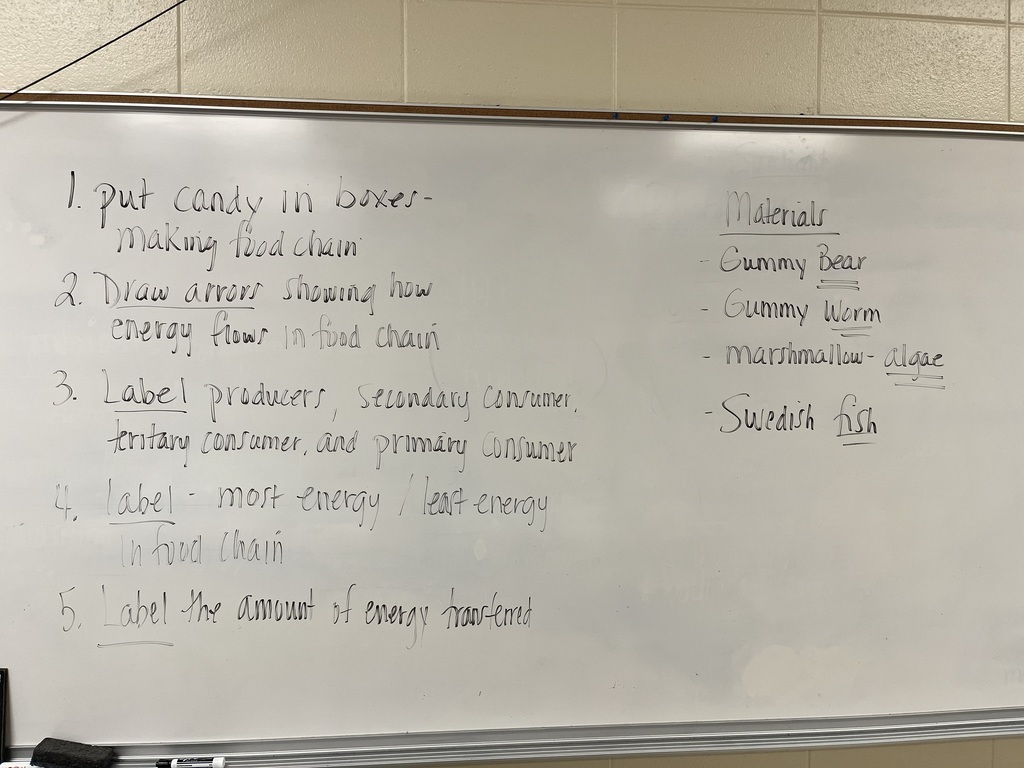 1. put candy in boxes-
making food chain
2. Draw arrors showing how
energy flows in food chain
3. Label producers, secondary consumer,
teritary consumer, and primary consumer
4. label - most energy / least energy
in food chain
5. Label the amount of energy transferred
Materials
- Gummy Bear
- Gummy Worm
- marshmallow- algae
- Swedish fish